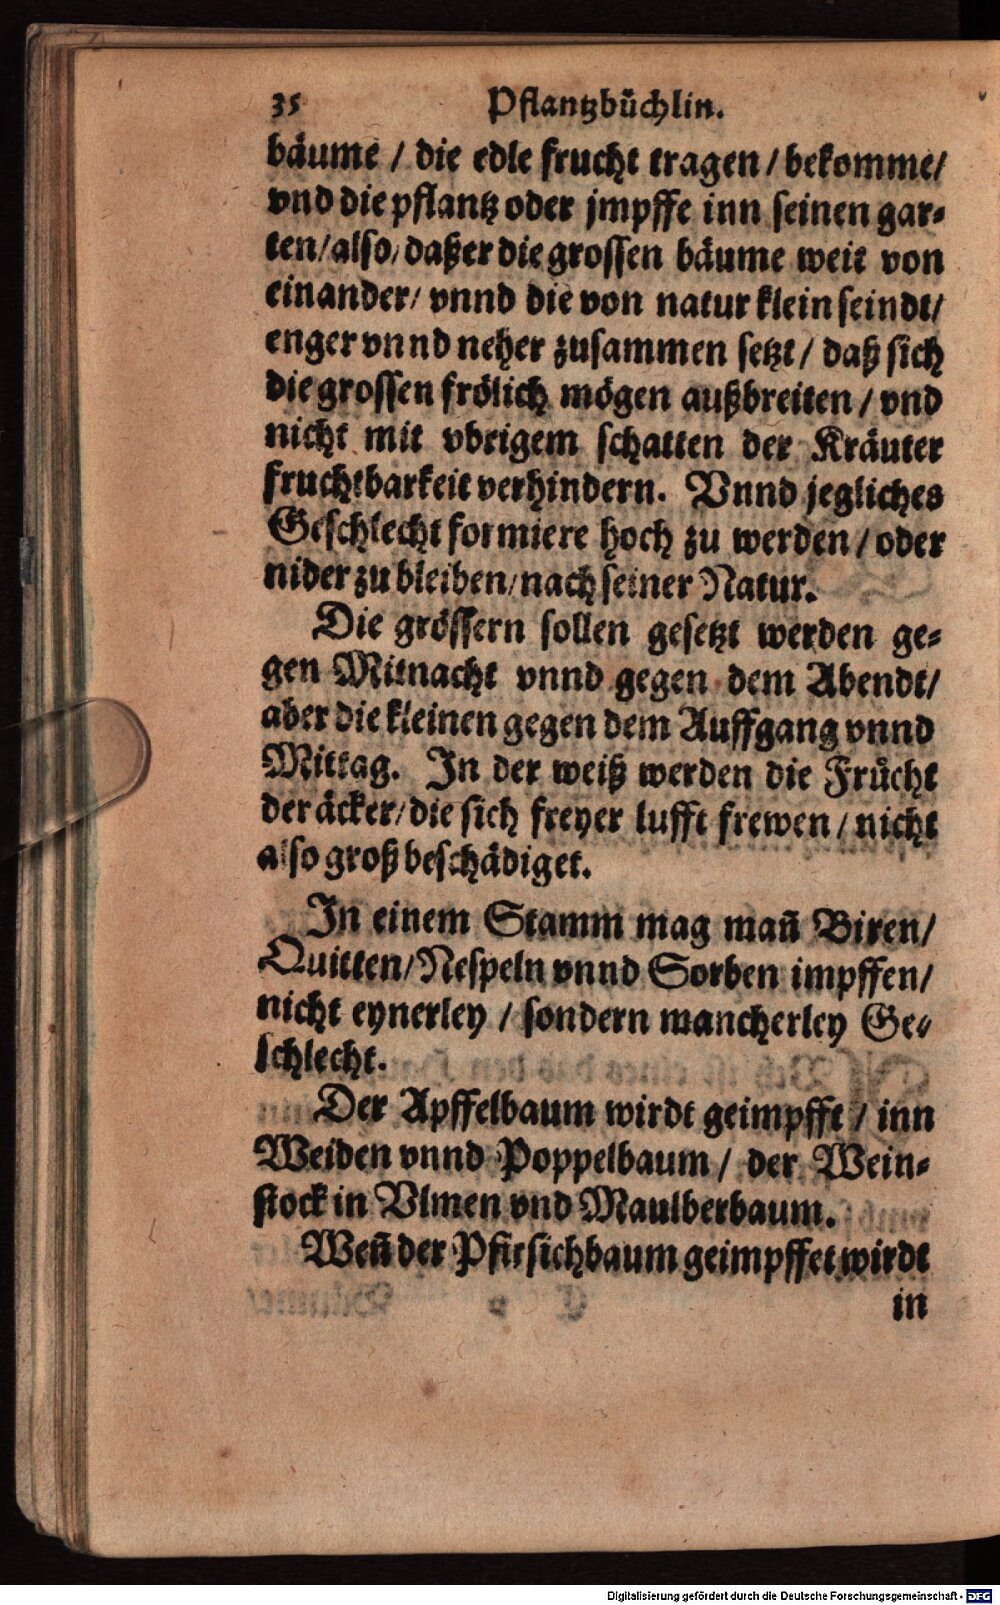 35 Pflantzbüchlin.
bäume / die edle frucht tragen / bekomme/
vnd die pflantz oder jmpffe inn seinen gar-
ten/ also/ daß er die grossen bäume weit von
einander/ vnnd die von natur klein seindt/
enger vnnd neher zusammen setzt / daß sich
die grossen frölich mögen außbreiten / vnd
nicht mit vbrigem schatten der Kräuter
fruchtbarkeit verhindern. Vnnd jegliches
Geschlecht formiere hoch zu werden / oder
nider zu bleiben/ nach seiner Natur.
Die grössern sollen gesetzt werden ge-
gen Mitnacht vnnd gegen dem Abendt/
aber die kleinen gegen dem Auffgang vnnd
Mittag. In der weiß werden die Frücht
der äcker/ die sich freyer lufft frewen / nicht
also groß beschädiget.
In einem Stamm mag mañ Biren/
Quitten/ Nespeln vnnd Sorben impffen/
nicht eynerley / sondern mancherley Ge-
schlecht.
Der Apffelbaum wirdt geimpfft / inn
Weiden vnnd Poppelbaum / der Wein-
stock in Vlmen vnd Maulberbaum.
Weñ der Pfirsichbaum geimpffet wirdt
in
Digitalisierung gefördert durch die Deutsche Forschungsgemeinschaft - DFG